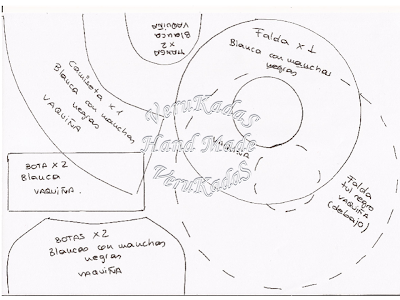 MANGA
x 2
Blanca
VAQUIÑA
Falda x 1
Blanca con manchas
negras
Camiseta x 1
Blanca con manchas
negras
VAQUIÑA
VeruKadaS
Hand Made
VeruKadaS
BOTA x 2
Blanca
VAQUIÑA.
Falda
tul negro
VAQUIÑA
(debajo)
BOTAS x 2
Blancas con manchas
negras
VAQUIÑA